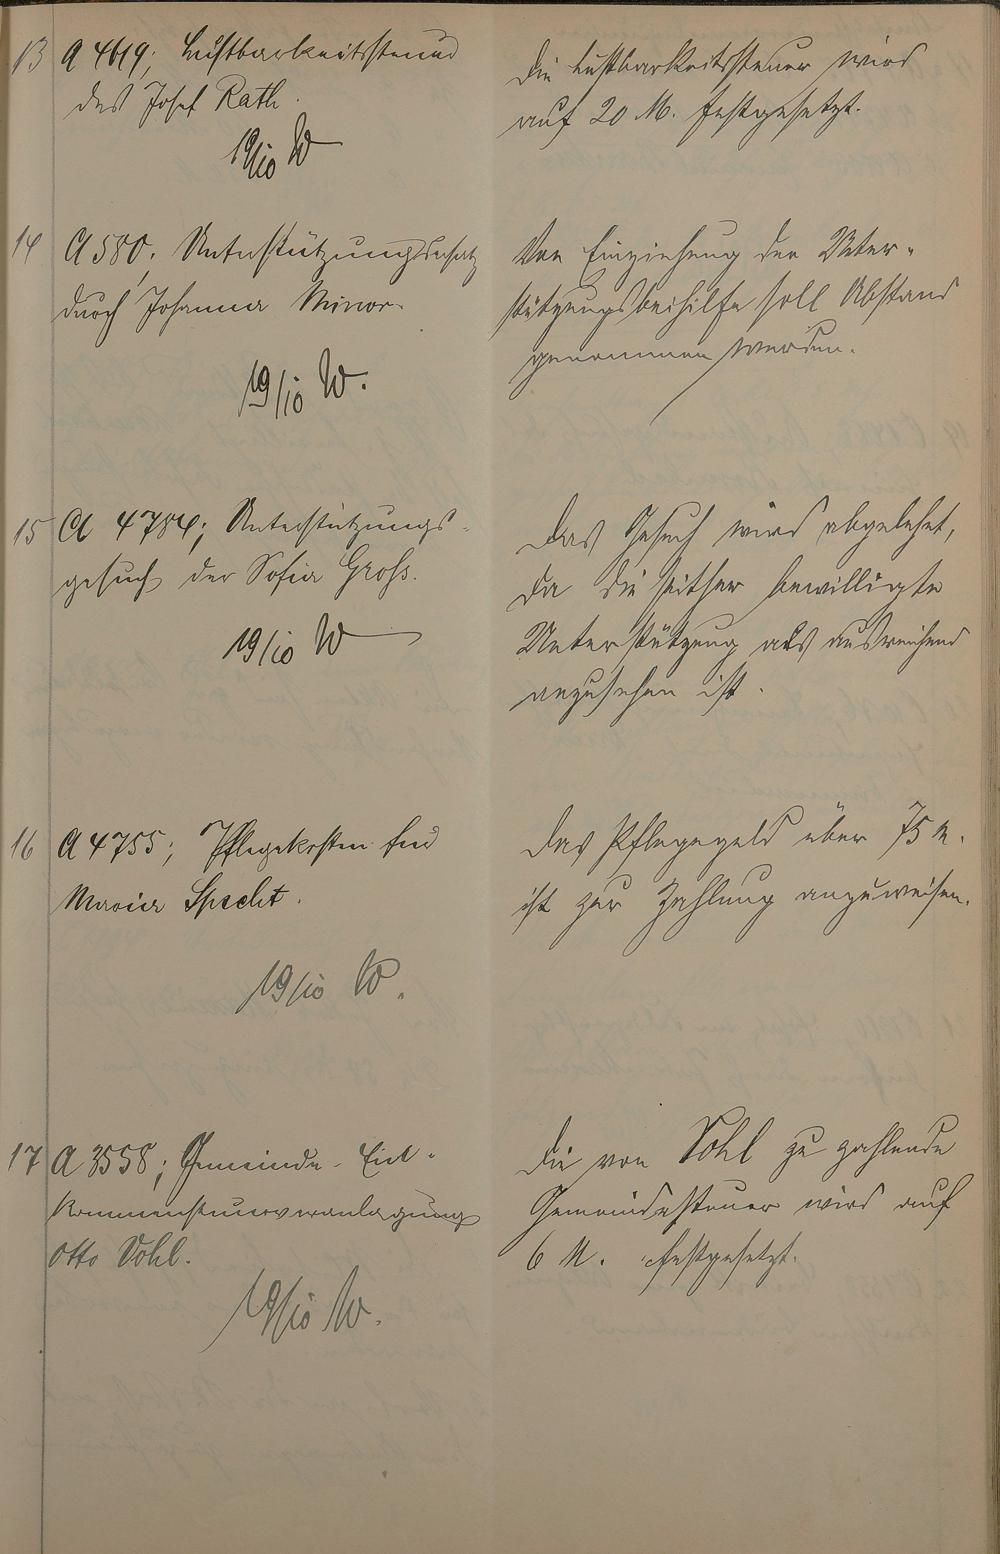 13 A 4619; Lustbarkeitssteuer
des Josef Rath.
19/10 W
Die Lustbarkeitssteuer wird
auf 20 M. festgesetzt.
14 A 580. Unterstützungsersatz
durch Johanna Minor.
19/10 W.
Von Einziehung der Unter-
stützungsbeihilfe soll Abstand
genommen werden.
15 A 4784; Unterstützungs-
gesuch der Sofia Groß.
19/10 W
Das Gesuch wird abgelehnt,
da die seither bewilligte
Unterstützung als ausreichend
anzusehen ist.
16 A 4755; Pflegekosten für
Maria Specht.
19/10 W.
Das Pflegegeld über 75 M.
ist zur Zahlung anzuweisen.
17 A 3558; Gemeinde-Ein-
kommensteuerveranlagung
Otto Vohl.
19/10 W.
Die von Vohl zu zahlende
Gemeindesteuer wird auf
6 M. festgesetzt.